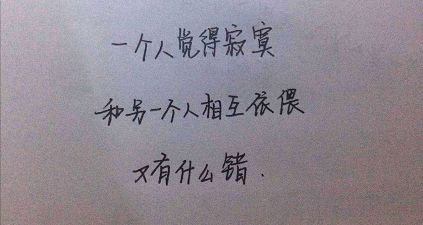 一个人觉得寂寞
和另一个人相互依偎
又有什么错.